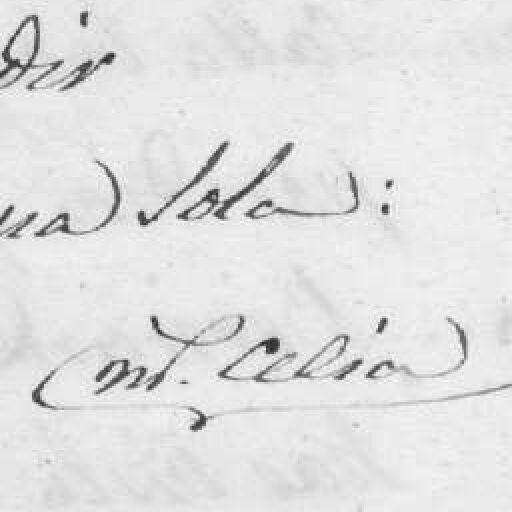 dir
ua sola:
M. Celia